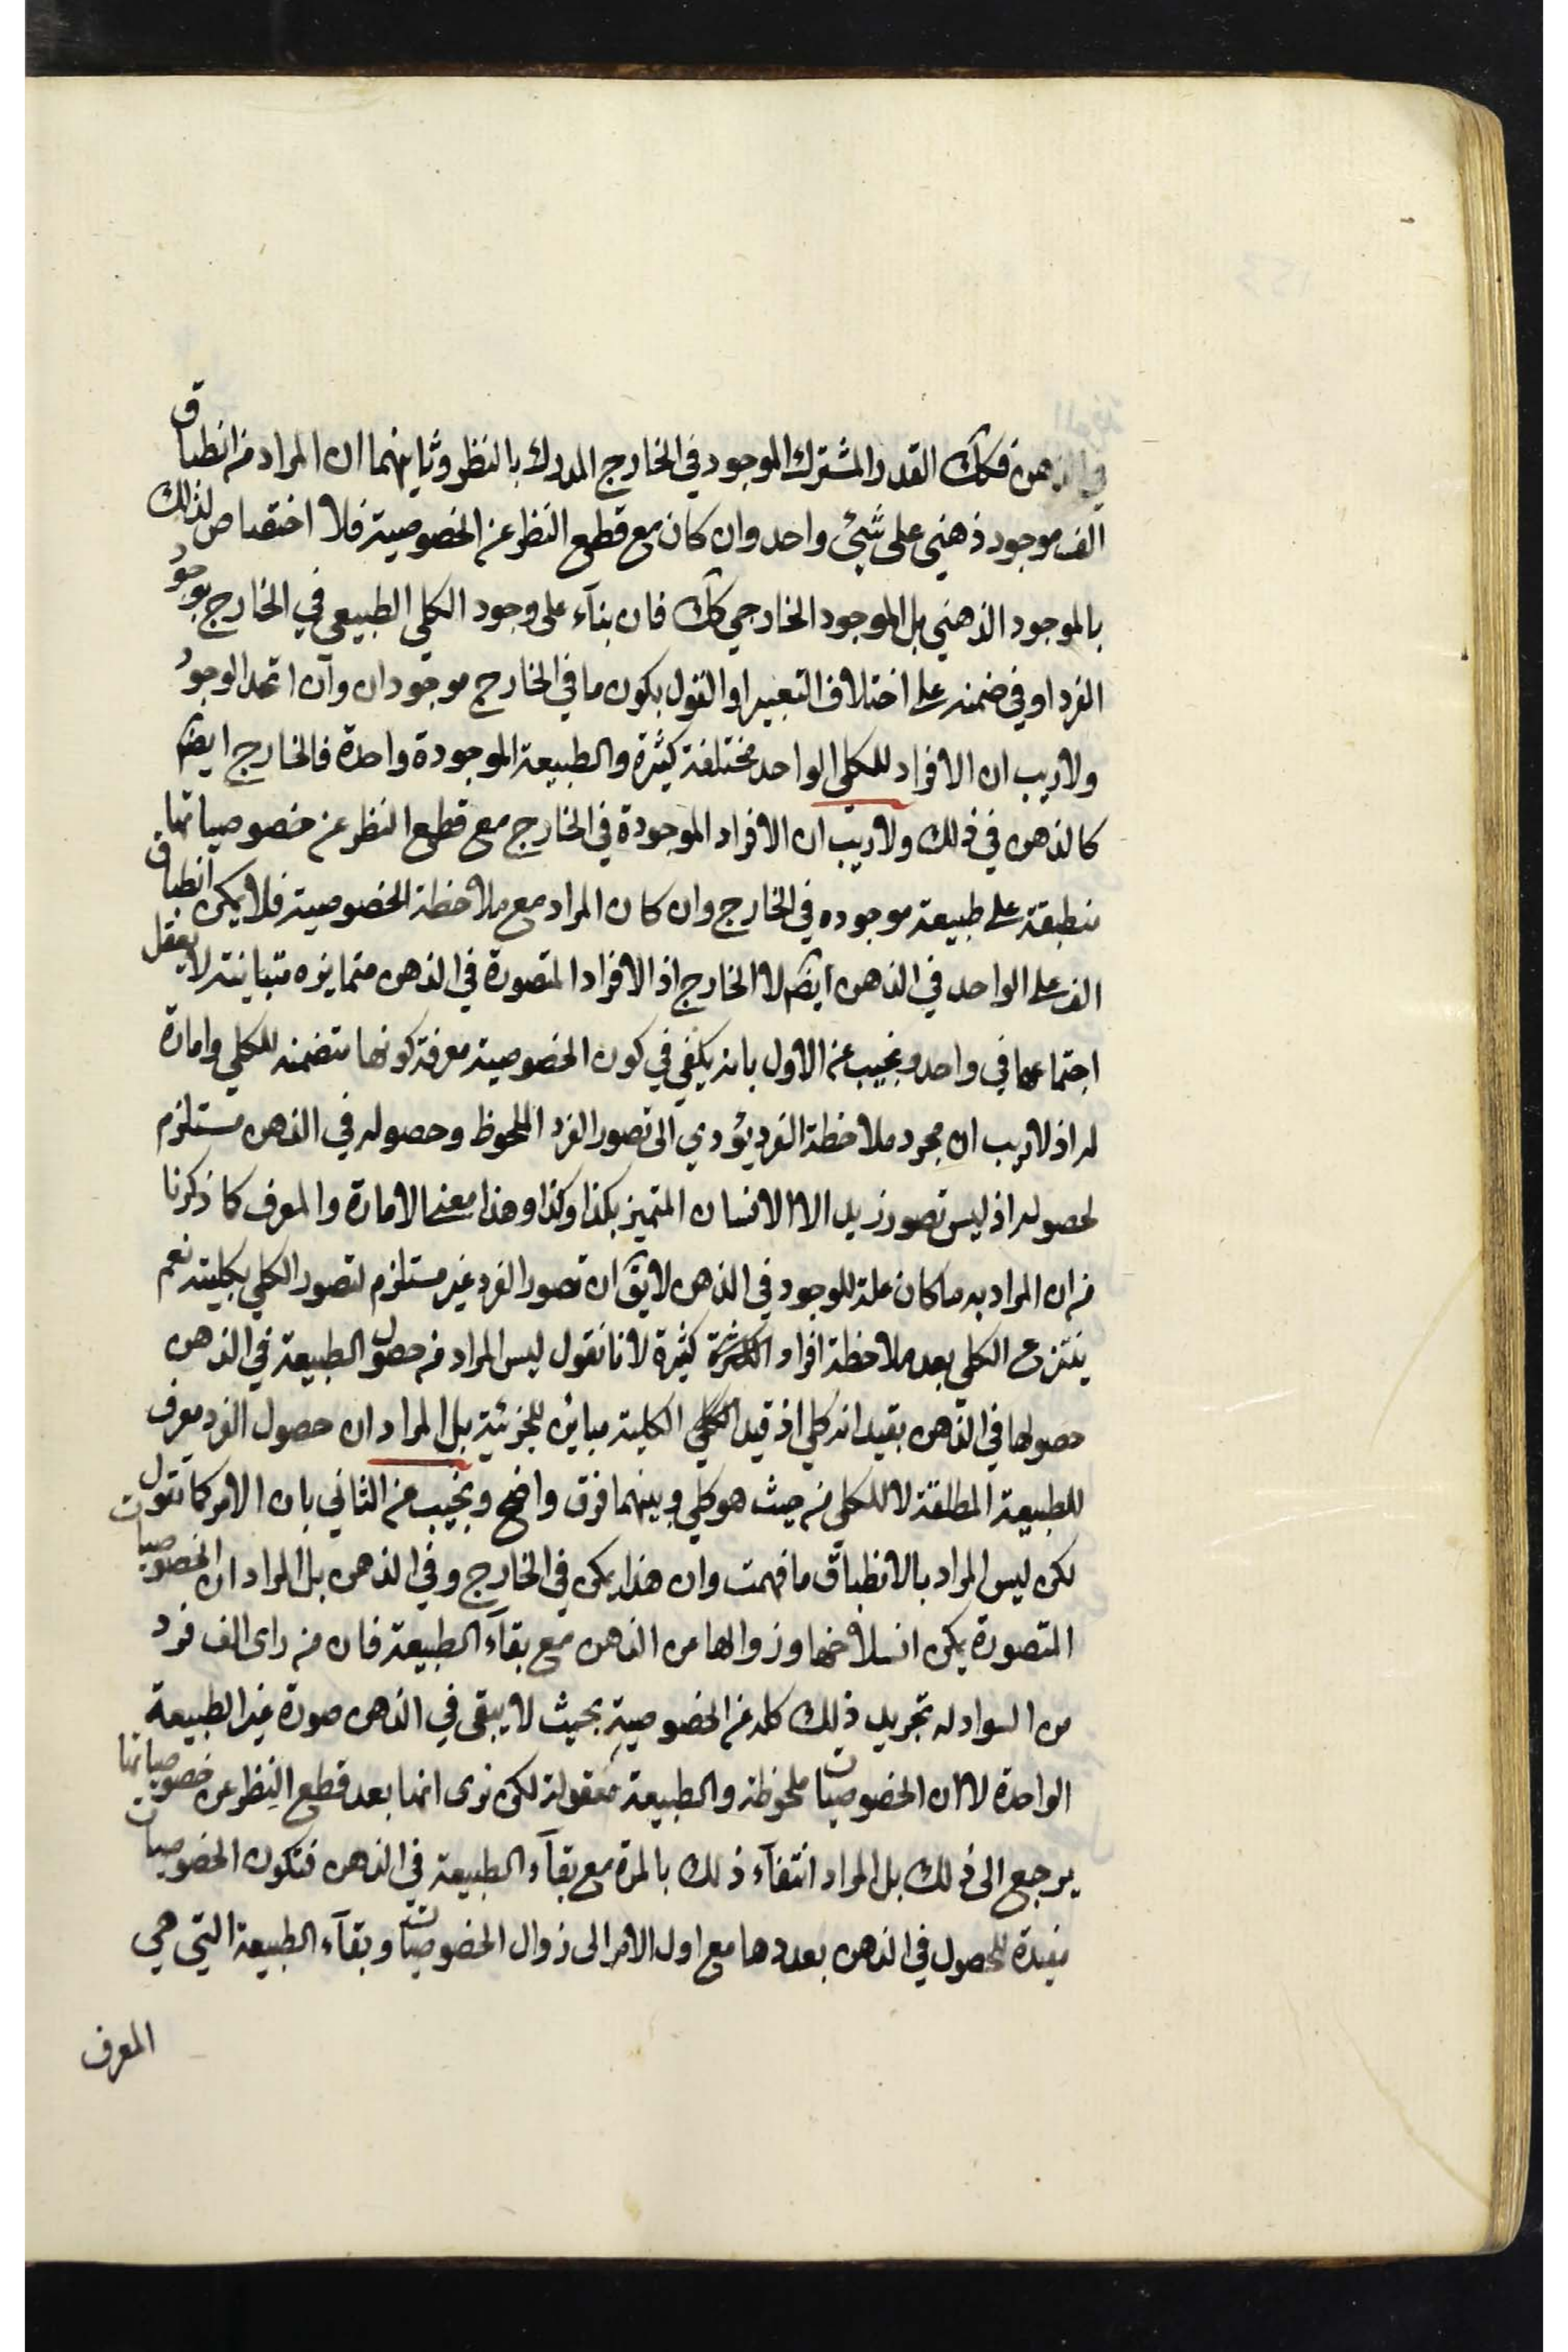 في الذهن فكك القدر المشترك الموجود في الخارج المدرك بالنظر وثانيهما ان المراد من انطباق
الف موجود ذهني على شيئ واحد وان كان مع قطع النظر عن الخصوصية فلا اختصاص لذلك
بالموجود الذهني بل الموجود الخارجي كك فان بنآء على وجود الكلي الطبيعي في الخارج بوجود
الفرد او في ضمنه على اختلاف التعبير او القول بكون ما في الخارج موجودان وان اتحد الوجود
ولا ريب ان الافراد للكلي الواحد مختلفة كثيرة والطبيعة الموجودة واحدة فالخارج ايضا
كالذهن في ذلك ولا ريب ان الافراد الموجودة في الخارج مع قطع النظر عن خصوصياتها
منطبقة على طبيعة موجوده في الخارج وان كان المراد مع ملاحظة الخصوصية فلا يمكن انطباق
الف على الواحد في الذهن ايضا لا الخارج اذ الافراد المتصورة في الذهن متمايزه متباينة لا يعقل
اجتماعها في واحد ونجيب عن الاول بانه يكفي في كون الخصوصية معرفة كونها متضمنه للكلي وامارة
له اذ لا ريب ان مجرد ملاحظة الفرد يؤدي الى تصور الفرد الملحوظ وحصوله في الذهن مستلزم
لحصوله اذ ليس تصور زيد الا الانسان المتميز بكذا وكذا وهذا معنى الامارة والمعرف كما ذكرنا
من ان المراد به ما كان علة للوجود في الذهن لا يق ان تصور الفرد غير مستلزم لتصور الكلي بكليته نعم
ينتزع الكلي بعد ملاحظة افراد كثيرة لانا نقول ليس المراد من حصول الطبيعة في الذهن
حصولها في الذهن بقيد انه كلي اذ قيد الكلية مباين للجزئية بل المراد ان حصول الفرد معرف
للطبيعة المطلقة لا للكلي من حيث هو كلي وبينهما فرق واضح ونجيب عن الثاني بان الامر كما تقول
لكن ليس المراد بالانطباق ما فهمت وان هذا يمكن في الخارج وفي الذهن بل المراد ان الخصوصيات
المتصورة يمكن انسلاخها وزوالها من الذهن مع بقآء الطبيعة فان من راى الف فرد
من السواد له تجريد ذلك كله عن الخصوصية بحيث لا يبقى في الذهن صورة غير الطبيعة
الواحدة لا ان الخصوصيات ملحوظة والطبيعة معقولة لكن نرى انها بعد قطع النظر عن خصوصياتها
يرجع الى ذلك بل المراد انتفآء ذلك بالمرة مع بقآء الطبيعة في الذهن فتكون الخصوصيات
مفيدة للحصول في الذهن بعددها مع اول الامر الى زوال الخصوصيات وبقآء الطبيعة التي هي
المعرف